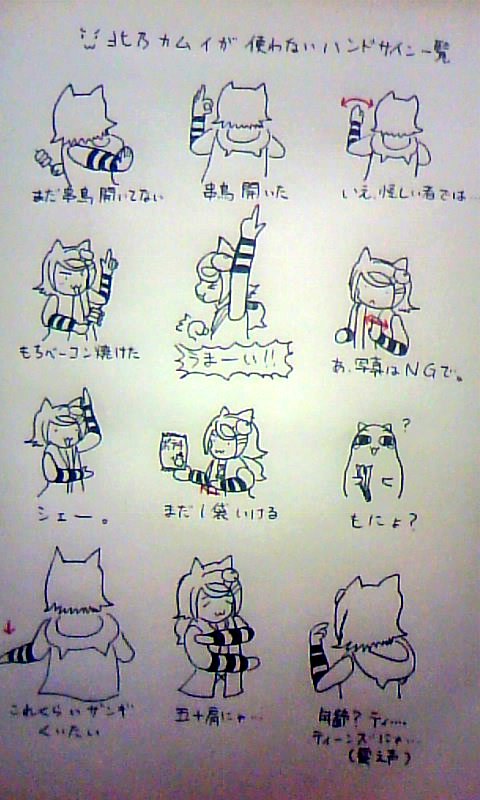 北乃カムイが使わないハンドサイン一覧
まだ串鳥開いてない
串鳥開いた
いえ、怪しい者では…
もちベーコン焼けた
うまーい!!
あ、写真はNGで。
シェー。
まだ1袋いける
?
もにょ?
これくらいザンギ
くいたい
五十肩にゃ…
年齢?ティ…
ティーンズにゃ…
(震え声)